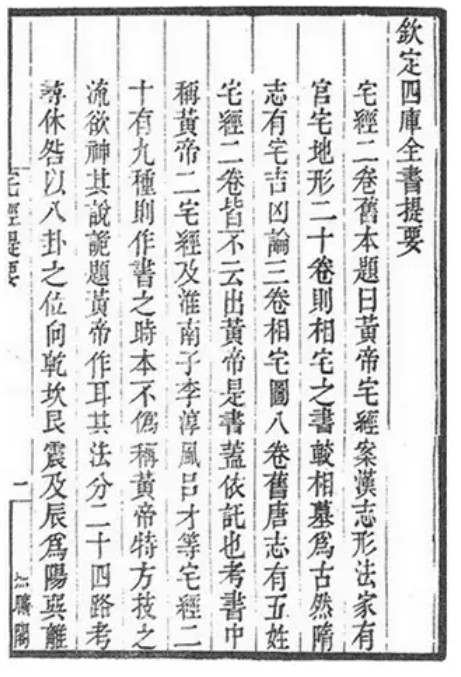 欽定四庫全書提要
宅經二卷舊本題曰黃帝宅經案漢志形法家有
官宅地形二十卷則相宅之書較相墓爲古然隋
志有宅吉凶論三卷相宅圖八卷舊唐志有五姓
宅經二卷皆不云出黃帝是書蓋依託也考書中
稱黃帝二宅經及淮南子李淳風呂才等宅經二
十有九種則作書之時本不僞稱黃帝特方技之
流欲神其說詭題黃帝作耳其法分二十四路考
尋休咎以八卦之位向乾坎艮震及辰爲陽巽離
宅經提要
一
曠閣